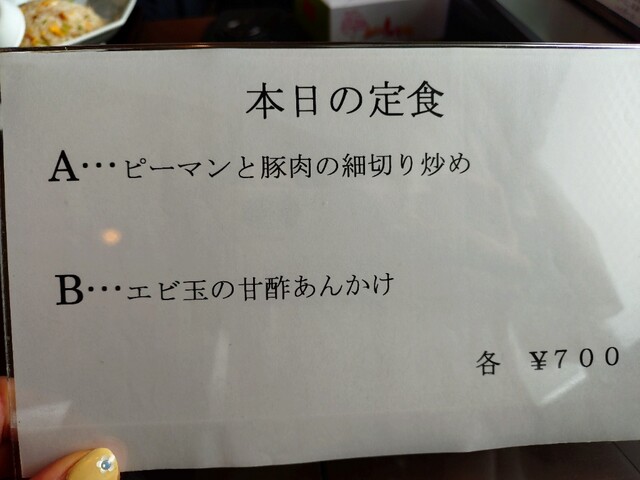 本日の定食
A…ピーマンと豚肉の細切り炒め
B…エビ玉の甘酢あんかけ
各　￥７００